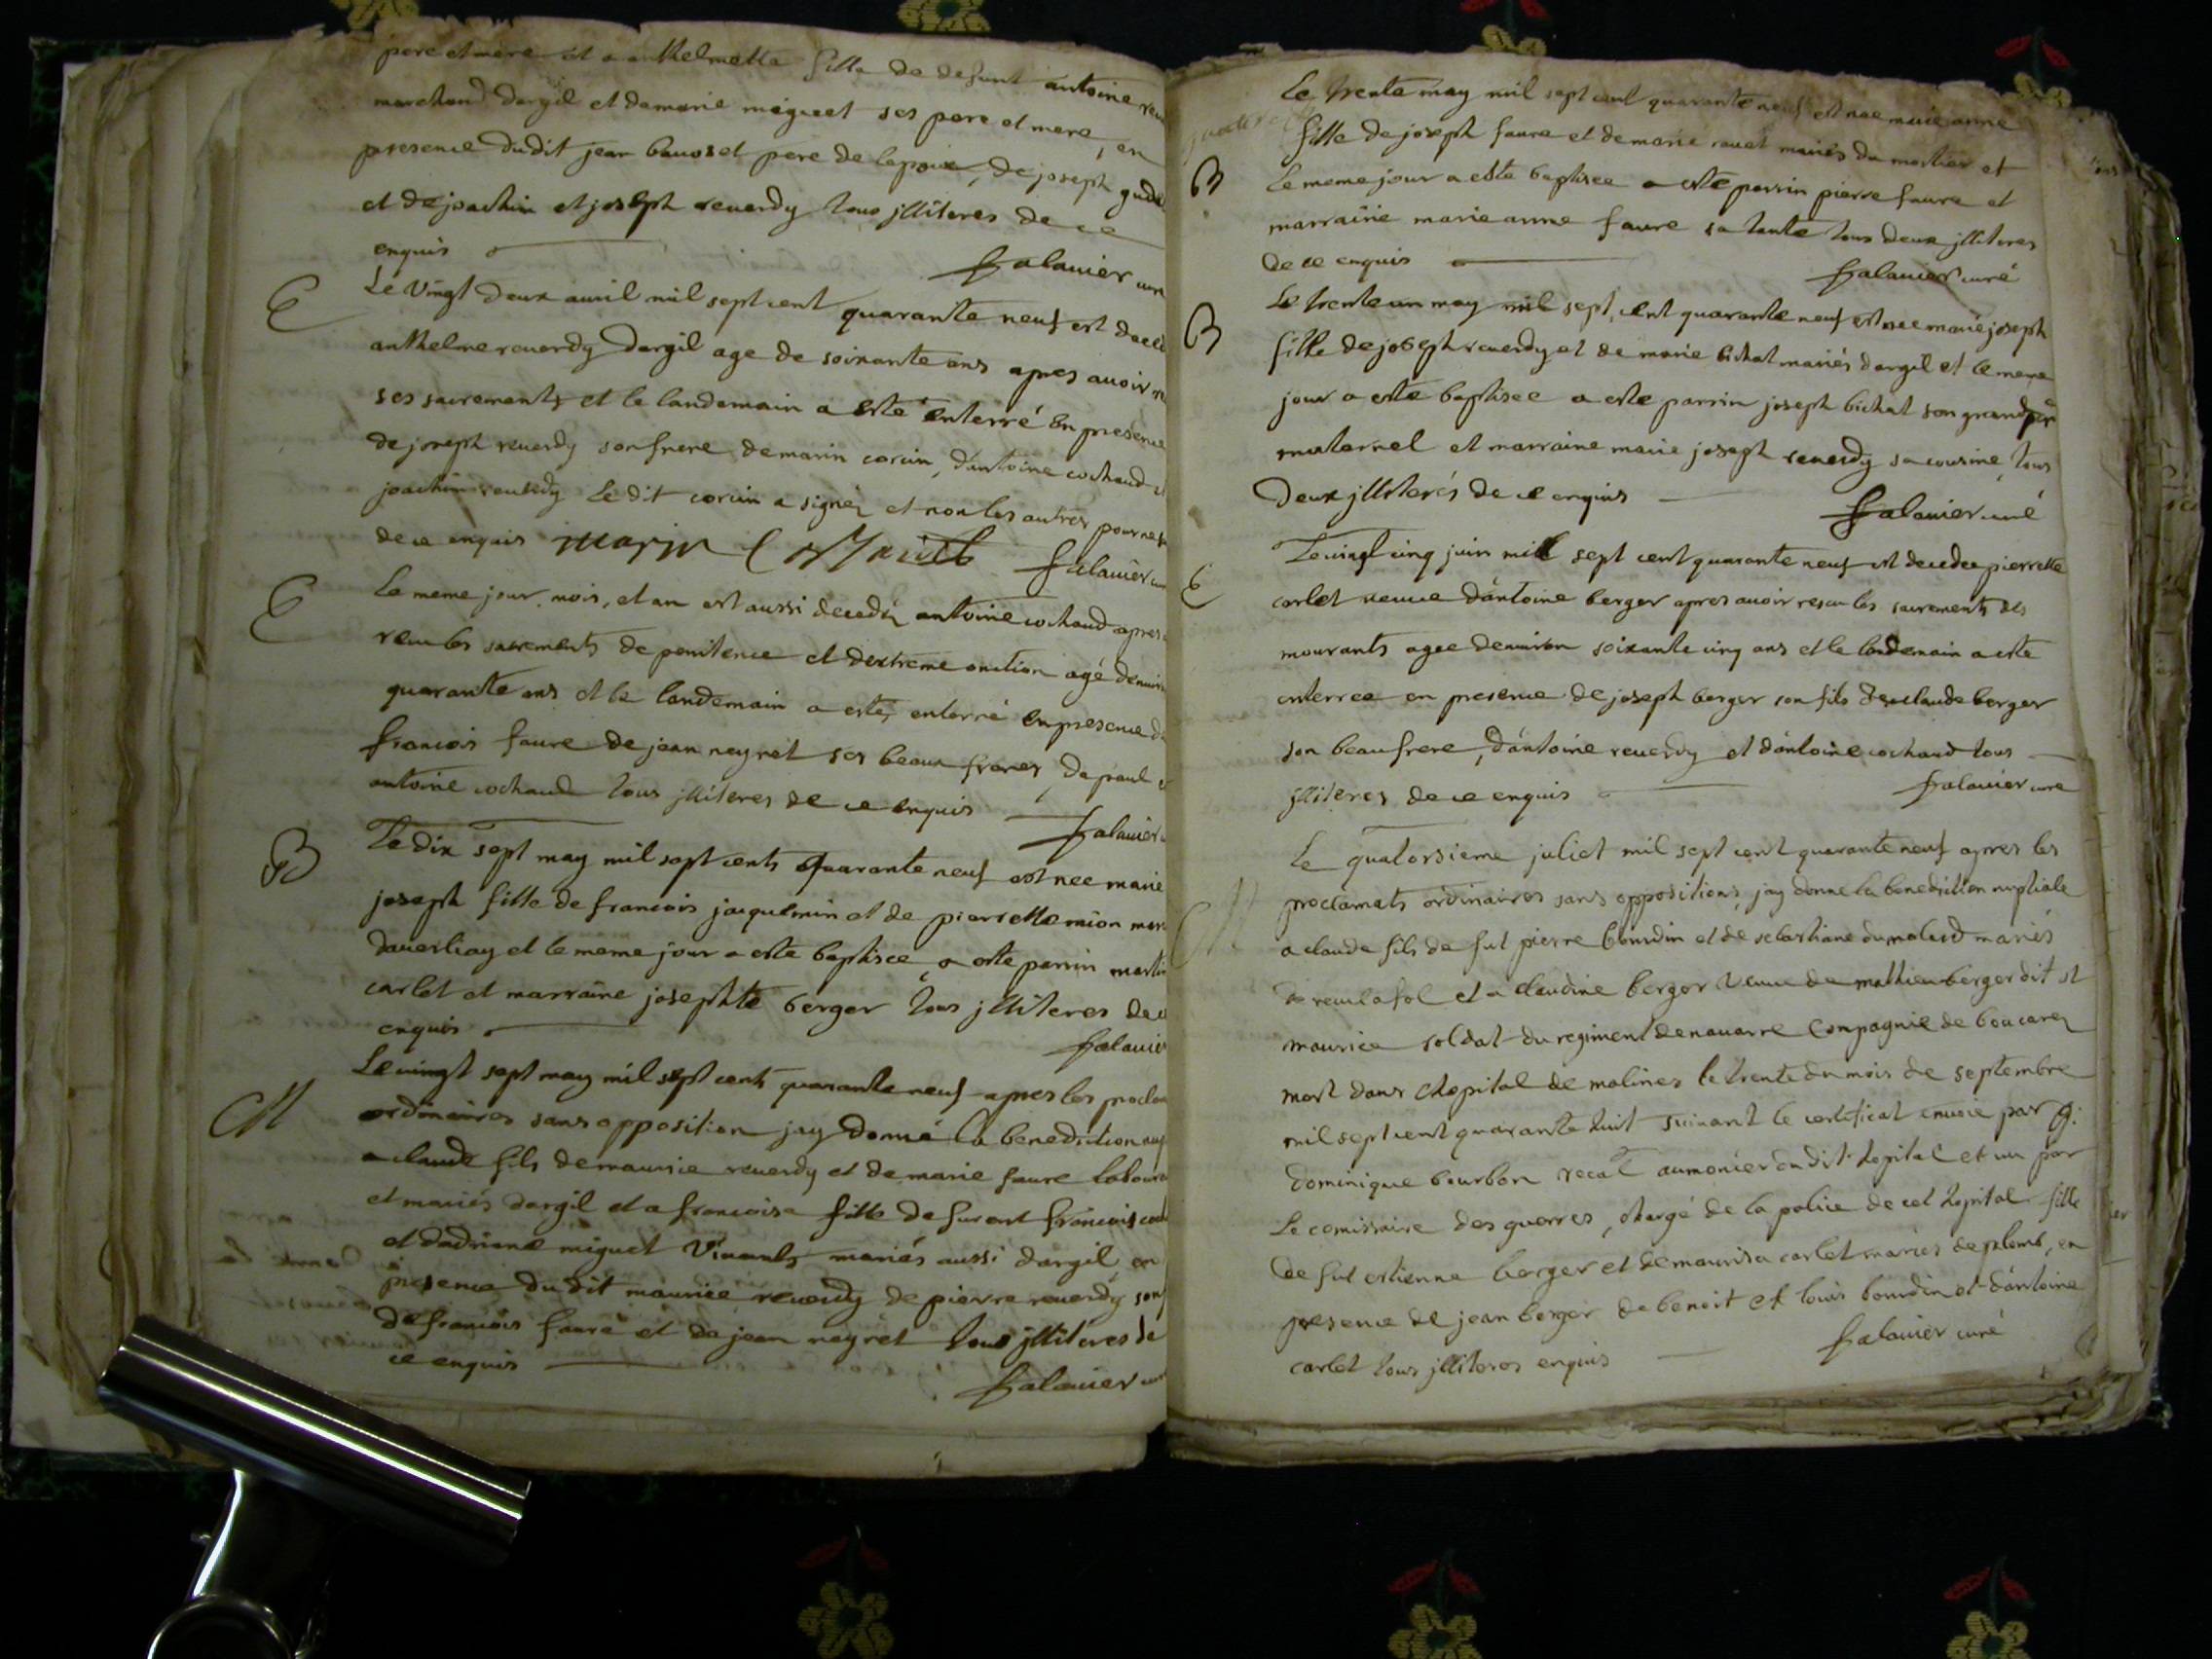 pere et mere et a anthelmette fille de defunt antoine
marchand dargil et de marie miguet ses pere et mere, en
presence dudit jean pere de lepoux, de joseph
et de joachim et joseph reverdy tous jlliteres de ce
enquis
falavier curé
E
Le vingt deux avril mil sept cent quarante neuf est
anthelme reverdy dargil age de soixante ans apres avoir
ses sacrements et le landemain a esté enterré en presence
de joseph reverdy son frere de marin corcin, d'antoine cochaud
joachim reverdy Le dit corcin a signé et non les autres pour
de ce enquis marin falavier
E
Le meme jour, mois, et an est aussi decedé antoine cochaud apres
receu les sacrements de penitence et dextreme onction agé
quarante ans et le landemain a esté enterré en presence
francois faure de jean neyret ses beaux freres, de paul
antoine cochaud tous jlliteres de ce enquis
falavier
B
Le dix sept may mil sept cents quarante neuf est nee marie
joseph fille de francois jacquemin et de pierrette mion
daverliay et le meme jour a esté baptisee a esté parrin
carlet et marraine josephte berger tous jlliteres
enquis
falavier
M
Le vingt sept may mil sept cents quarante neuf apres les
ordinaires sans opposition jay donné la benediction
a claude fils de maurice reverdy et de marie faure
et mariés dargil et a francoise fille de francois
et dadriane miguet vivants mariés aussi dargil en
presence du dit maurice reverdy de pierre reverdy
de francois faure et de jean neyret tous jlliteres de
ce enquis
falavier
Le trente may mil sept cent quarante neuf est nee marie anne
fille de joseph faure et de marie mariés du mortier et
B
Le meme jour a esté baptisee a esté parrin pierre faure et
marraine marie anne faure sa tante tous deux jlliteres
de ce enquis
falavier curé
B
Le trente un may mil sept cent quarante neuf est nee marie joseph
fille de joseph reverdy et de marie bichat mariés dargil et le meme
jour a esté baptisee a esté parrin joseph bichat son grand pere
maternel et marraine marie joseph reverdy sa cousine tous
deux jlliterés de ce enquis
falavier curé
E
Le vingt cinq juin mil sept cent quarante neuf est decedee pierrette
carlet veuve d'antoine berger apres avoir receu les sacrements des
mourants agee denviron soixante cinq ans et le landemain a esté
enterree en presence de joseph berger son fils de claude berger
son beaufrere, d'antoine reverdy et d'antoine cochaud tous
jlliteres de ce enquis
falavier curé
M
Le quatorsieme juliet mil sept cent quarante neuf apres les
proclamats ordinaires sans oppositions, jay donné la benediction nuptiale
a claude fils de fut pierre bourdin et de sebastiane mariés
de et a claudine berger veuve de mathieu berger dit st
maurice soldat du regiment de navarre compagnie de boucarez
mort dans lhopital de malines le trente du mois de septembre
mil sept cent quarante huit suivant le certificat envoié par
dominique bourbon aumonier du dit hopital et vu par
Le comissaire des guerres, chargé de la police de cet hopital fille
de fut estienne berger et de maurisa carlet mariés de plomb, en
presence de jean berger de benoit et louis bourdin et d'antoine
carlet tous jlliteres enquis
falavier curé